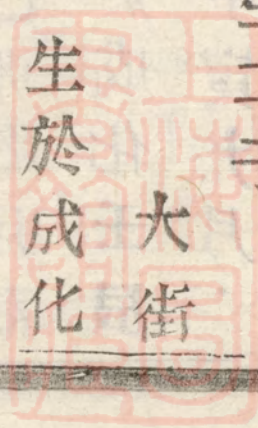 大街
生於成化